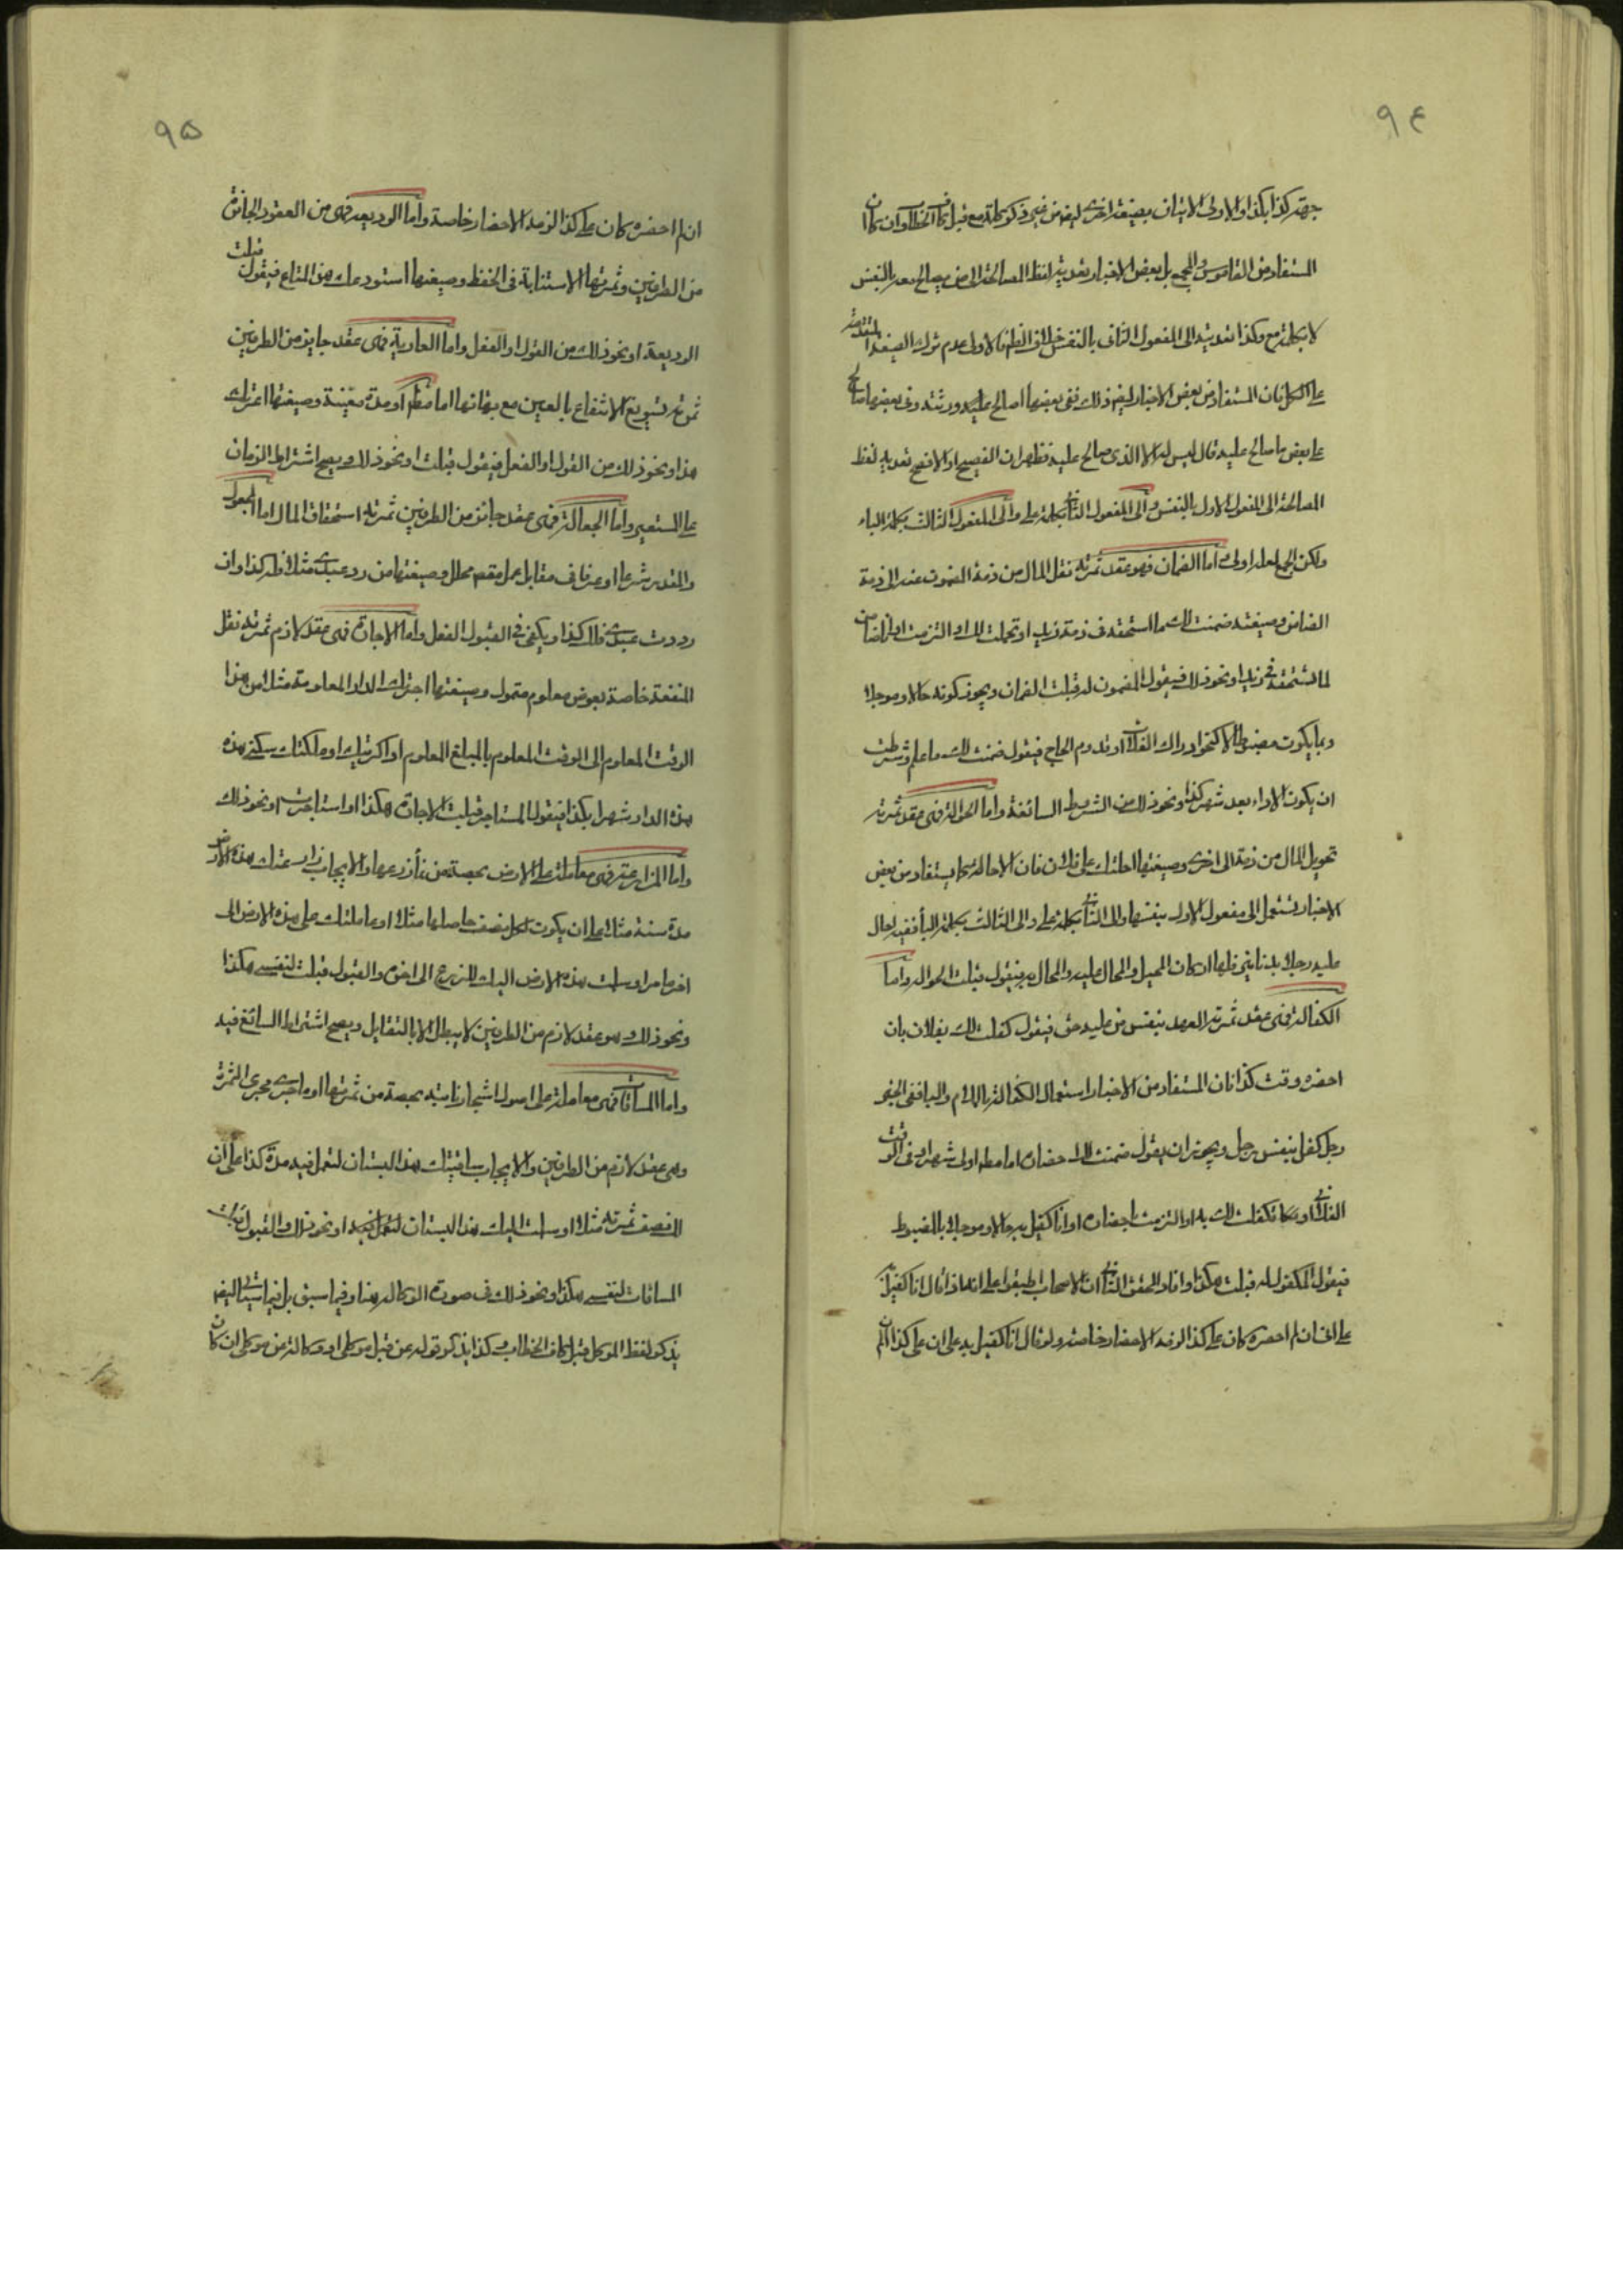 ٩٤
جهة كذا بكذا والاولى الاتيان بصيغة اخرى ايضا من غير ذكر كلمة مع قبل كاف الخطاب وان كان
المستفاد من القاموس والمجمع بل بعض الاخبار تعدية لفظ المصالحة الى من يصالح معه بالنفس
لا بكلمة مع وكذا تعديته الى المفعول الثانى بالنفس خلاف الظ فالاولى عدم ترك الصيغة المتقدمة
على الكل فان المستفاد من بعض الاخبار ايضا ذلك ففى بعضها اصالح عليه ورثته وفى بعضها صالح
على بعض ما صالح عليه قال ليس له الا الذى صالح عليه فظهر ان الفصيح او الافصح تعدية لفظ
المصالحة الى المفعول الاول بالنفس والى المفعول الثانى بكلمة على والى المفعول الثالث بكلمة الباء
ولكن الجمع لعله اولى واما الضمان فهو عقد ثمرته نقل المال من ذمة المضمون عنه الى ذمة
الضامن وصيغته ضمنت لك ما استحقه فى ذمة زيد او تحملت لك او التزمت او انا ضامن
لما تستحقه فى زيد او نحو ذلك فيقول المضمون له قبلت الضمان ويجوز كونه حالا وموجلا
وبما يكون مضبوطا لا كنحو ادراك الغلات او قدوم الحاج فيقول ضمنت لك ما علم وشرطت
ان يكون الاداء بعد شهر كذا ونحو ذلك من الشروط السائغة واما الحوالة فهى عقد ثمرته
تحويل المال من ذمة الى اخرى وصيغتها احلتك على فلان فان الاحالة كما يستفاد من بعض
الاخبار تستعمل الى مفعول الاول بنفسها والى الثانى بكلمة على والى الثالث بكلمة الباء ففيه احال
عليه رجلا بدنانير فلها اركان المحيل والمحال عليه والمحال به فيقول قبلت الحوالة واما
الكفالة فهى عقد ثمرته العهد بنفس من عليه حق فيقول كفلت لك بفلان بان
احضره وقت كذا فان المستفاد من الاخبار استعمال الكفالة باللام والباء ففى الخبر
رجل كفل بنفس رجل ويجوز ان يقول ضمنت لك احضاره اما مطم او الى شهر او فى الوقت
الفلانى او تكفلت لك به او التزمت باحضاره او انا كفيل به حالا وموجلا بالمضبوط
فيقول المكفول له قبلت هكذا وافاد المحقق الثانى ان الاصحاب اطبقوا على انه اذا قال انا كفيل
على انى ان لم احضره كان على كذا لزمه الاحضار خاصة ولو قال انا كفيل به على ان على كذا ان لم
٩٥
ان لم احضره كان على كذا لزمه الاحضار خاصة واما الوديعة فهى من العقود الجائزة
من الطرفين وثمرتها الاستنابة فى الحفظ وصيغتها استودعتك هذا المتاع فيقول قبلت
الوديعة او نحو ذلك من القول او الفعل واما العارية فهى عقد جايز من الطرفين
ثمرته تسويغ الانتفاع بالعين مع بقائها اما مطم او مدة معينة وصيغتها اعرتك
هذا ونحو ذلك من القول او الفعل فيقول قبلت او نحو ذلك ويصح اشتراط الزمان
على المستعير واما الجعالة فهى عقد جائز من الطرفين ثمرته استحقاق المال اما المجعول
والمقدر شرعا او عرفا فى مقابل عمل مقصم محلل وصيغتها من رد عبدى مثلا فله كذا وان
رددت عبدى فلك كذا ويكفى فى القبول الفعل واما الاجارة فهى عقد لازم ثمرته نقل
المنفعة خاصة بعوض معلوم متمول وصيغتها اجرتك الدار المعلومة مثلا من هذا
الوقت المعلوم الى الوقت المعلوم بالمبلغ المعلوم او اكريتك او ملكتك سكنى هذه
هذه الدار شهرا بكذا فيقول المستاجر قبلت الاجارة هكذا او استاجرت او نحو ذلك
واما المزارعة فهى معاملة على الارض بحصة من نماء زرعها والايجاب زارعتك هذه الارض
مدة سنة مثلا على ان يكون لكل نصف حاصلها مثلا او عاملتك على هذه الارض الى
اخر ما مر او سلمت هذه الارض اليك للزرع الى اخره والقبول قبلت لنفسى هكذا
ونحو ذلك وهو عقد لازم من الطرفين لا يبطل الا بالتقايل ويصح اشتراط السائغ فيه
واما المساقاة فهى معاملة على اصول اشجار نابتة بحصة من ثمرتها او ما جرى مجرى الثمرة
وهى عقد لازم من الطرفين والايجاب ساقيتك هذا البستان لتعمل فيه مدة كذا على ان
لك نصف ثمرته مثلا او سلمت اليك هذا البستان لتعمل فيه او نحو ذلك والقبول قبلت
المساقات لنفسى هكذا ونحو ذلك فى صورة الوكالة هنا وفيما سبق بل فيما سياتى ايضم
يذكر لفظ الموكل قبل كاف الخطاب وكذا يذكر قوله عن قبل موكلى او وكالة عن موكلى ان كان